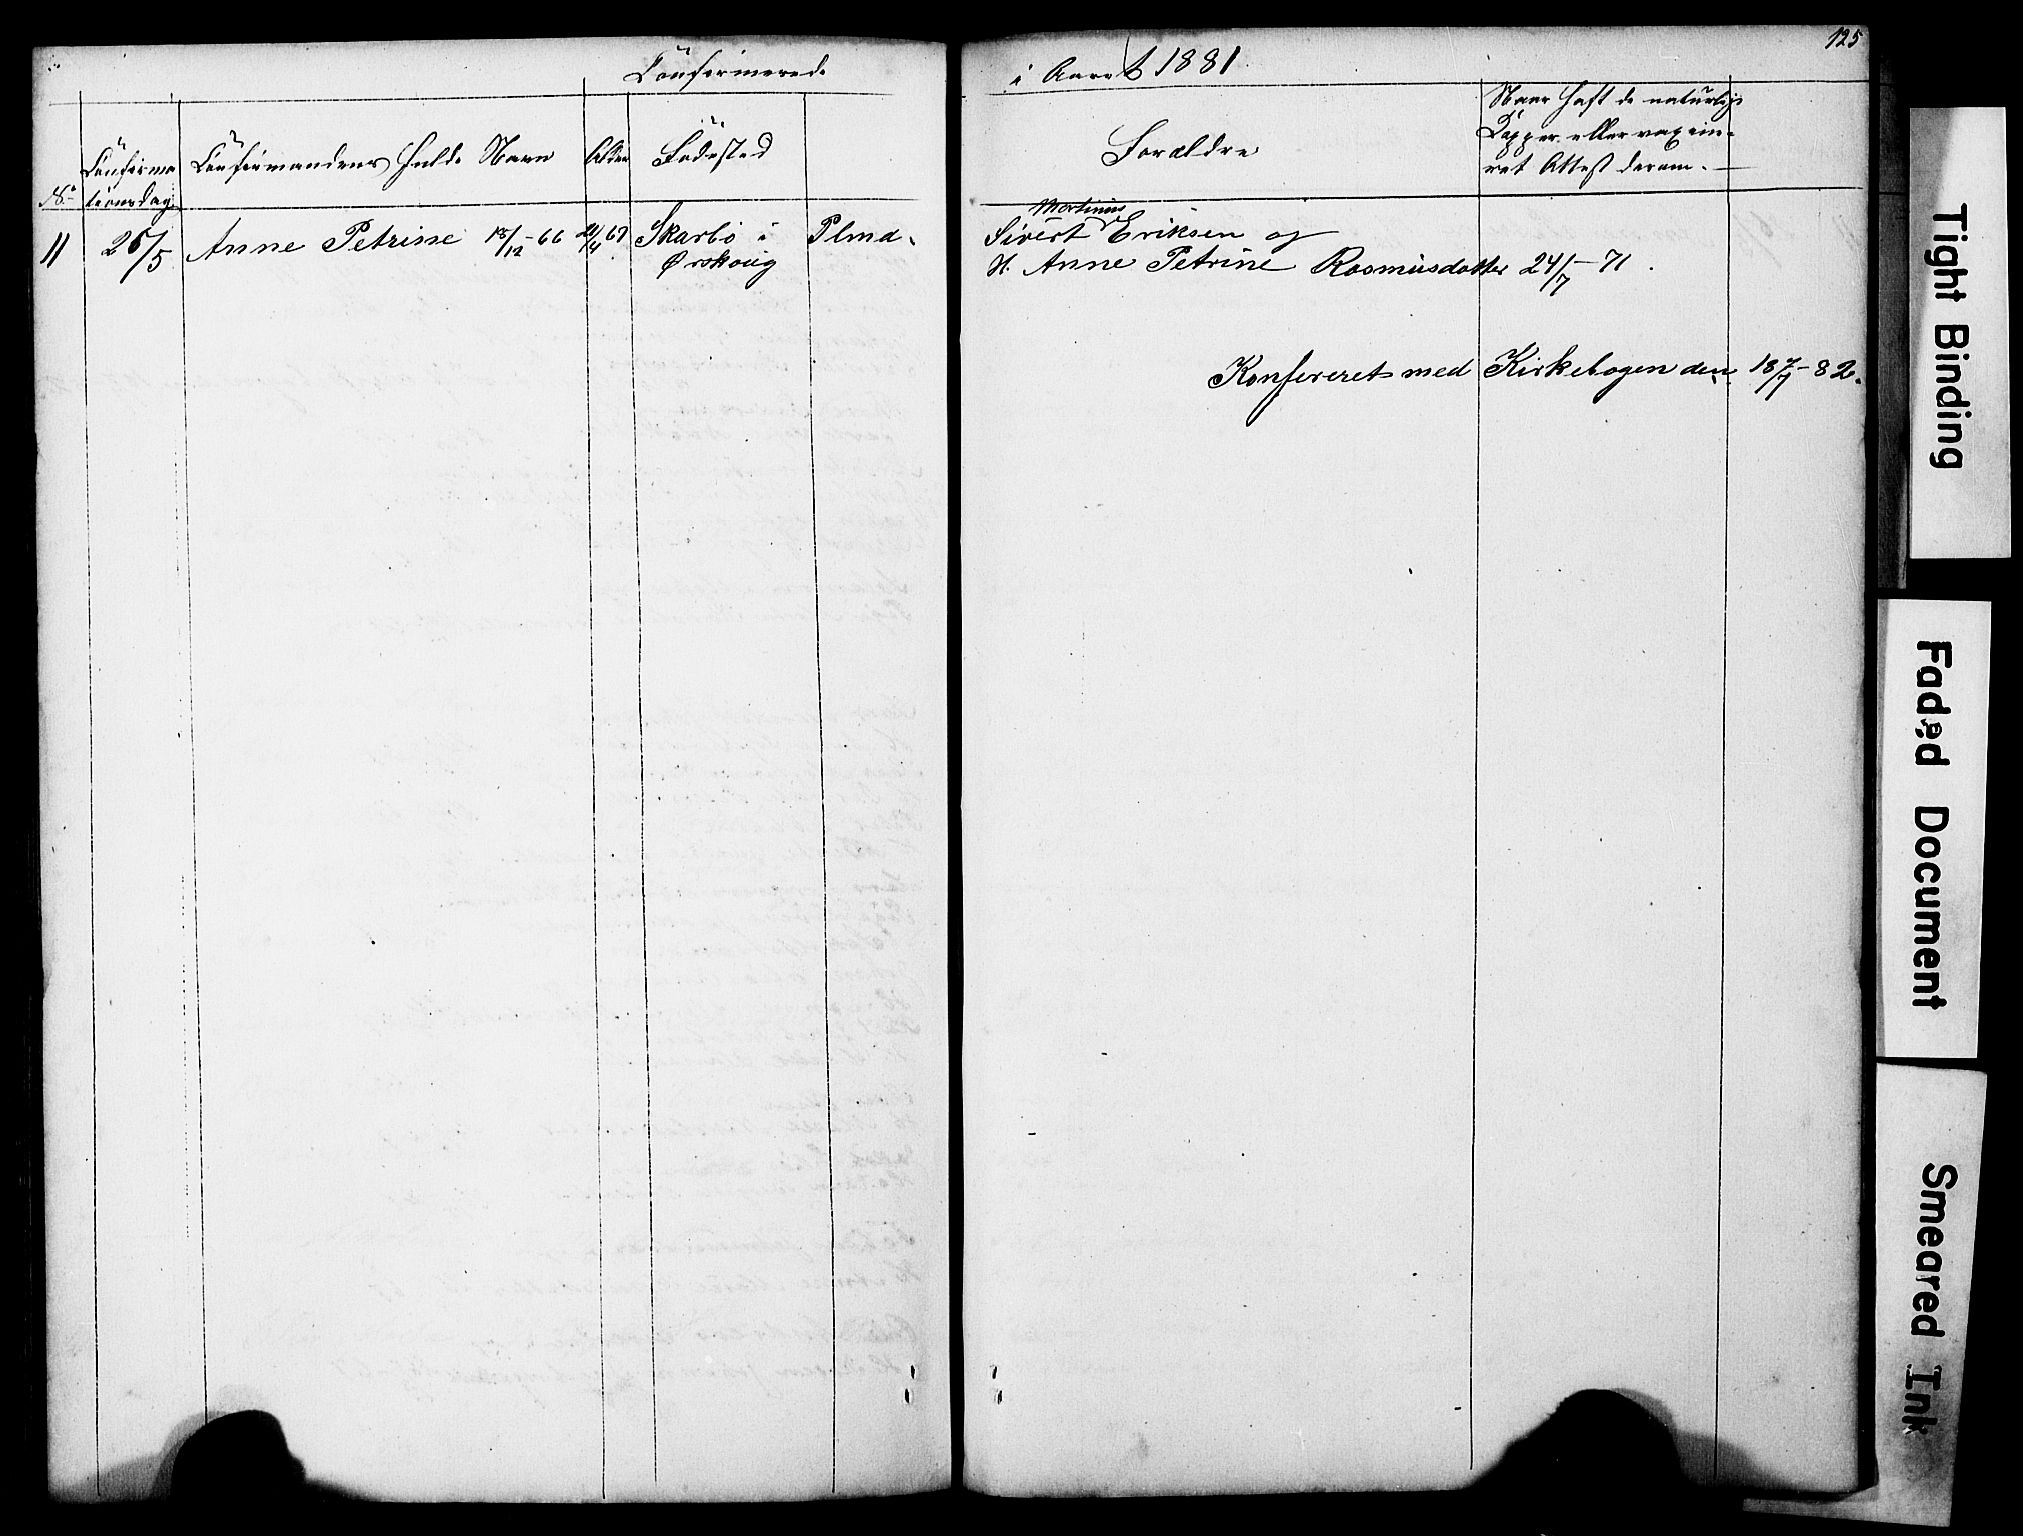 Confirmerede
i Aaret 1881
125
No
Confirma
tionsdag
Confirmandens fulde Navn
Alder
Födested
Forældre
Naar haft de naturlige
Kopper eller vaxcine-
ret Attest derom.
11 26/5 Anne Petrine 18/12-66 21/4 67 Skarbö i
Ørskoug
Martinus
Sivert Eriksen og
H. Anne Petrine Rasmusdatter 24/7-71.
Konfereret med Kirkebogen den 18/7-82.
Tight Binding
Faded Document
Smeared Ink